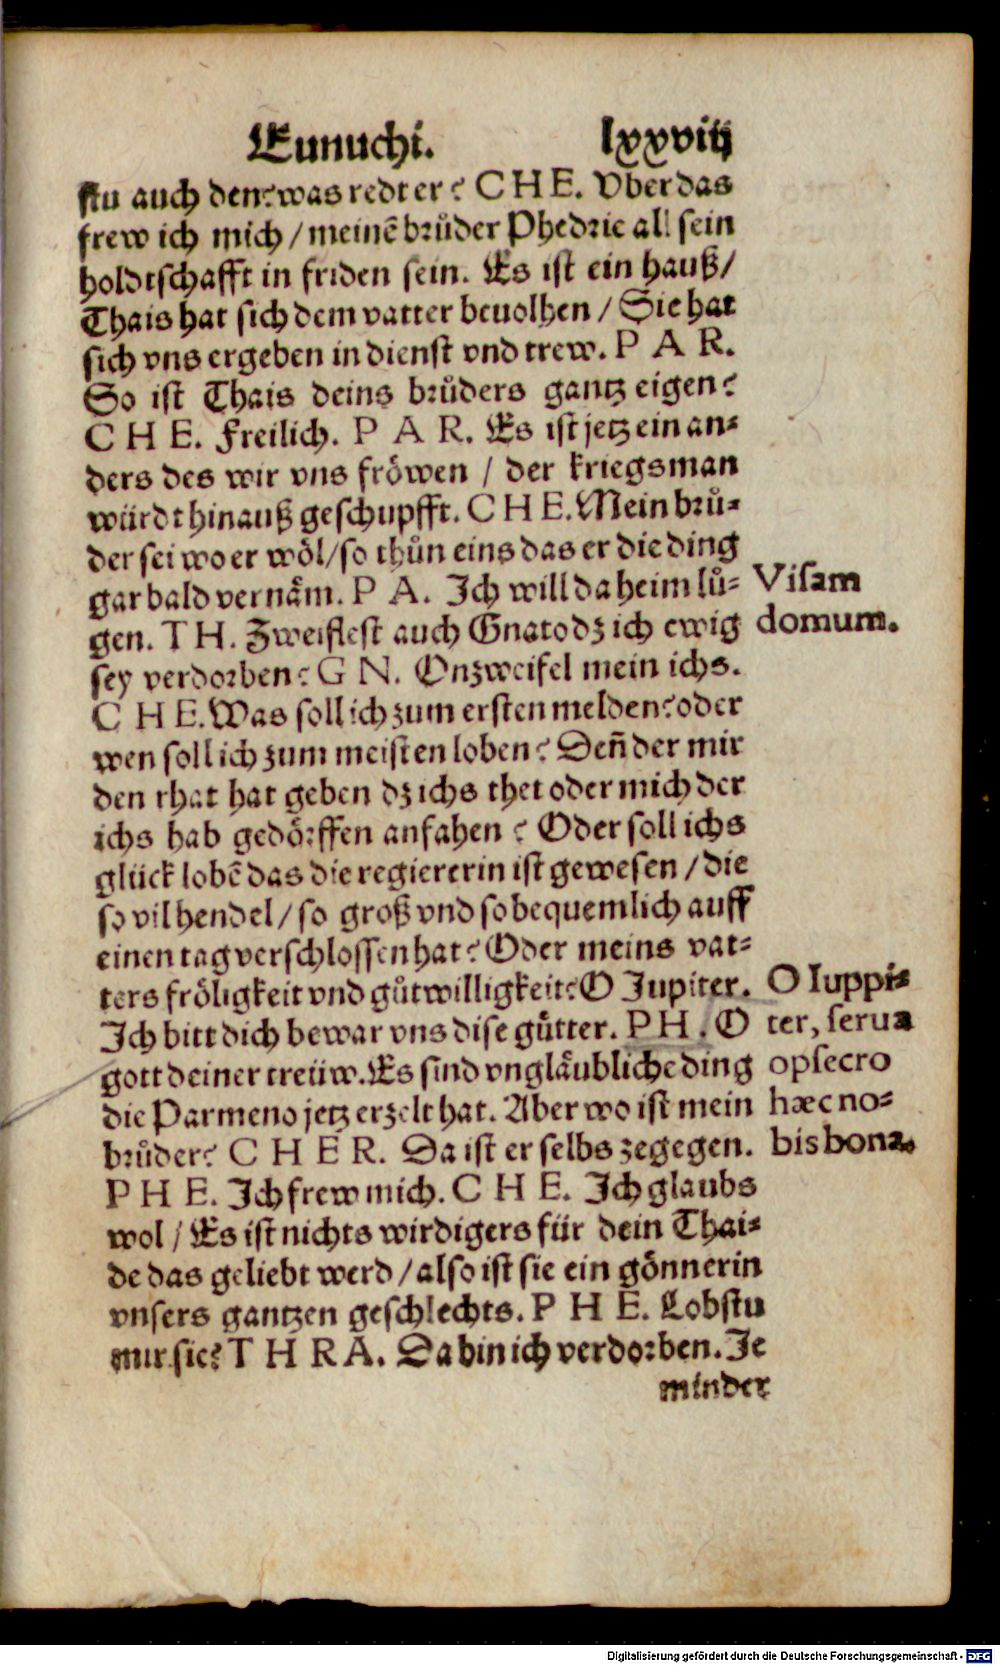 Eunuchi. lxxviij
stu auch den? was redt er? CHE. Vber das
frew ich mich / meinē brůder Phedrie all sein
holdtschafft in friden sein. Es ist ein hauß /
Thais hat sich dem vatter beuolhen / Sie hat
sich vns ergeben in dienst vnd trew. PAR.
So ist Thais deins brůders gantz eigen?
CHE. Freilich. PAR. Es ist jetz ein an⸗
ders des wir vns fröwen / der kriegsman
würdt hinauß geschupfft. CHE. Mein brů⸗
der sei wo er wöl / so thůn eins das er die ding
gar bald vernäm. PA. Ich will da heim lů⸗
gen. TH. Zweiflest auch Gnato dz ich ewig
sey verdorben? GN. Onzweifel mein ichs.
CHE. Was soll ich zum ersten melden? oder
wen soll ich zum meisten loben? Deñ der mir
den rhat hat geben dz ichs thet oder mich der
ichs hab gedörffen anfahen? Oder soll ichs
glück lobē das die regiererin ist gewesen / die
so vil hendel / so groß vnd so bequemlich auff
einen tag verschlossen hat? Oder meins vat⸗
ters fröligkeit vnd gůtwilligkeit? O Jupiter.
Ich bitt dich bewar vns dise gütter. PH. O
gott deiner treüw. Es sind vngläubliche ding
die Parmeno jetz erzelt hat. Aber wo ist mein
brůder? CHER. Da ist er selbs zegegen.
PHE. Ich frew mich. CHE. Ich glaubs
wol / Es ist nichts wirdigers für dein Thai⸗
de das geliebt werd / also ist sie ein gönnerin
vnsers gantzen geschlechts. PHE. Lobstu
mir sie? THRA. Da bin ich verdorben. Je
minder
Visam
domum.
O Iuppi⸗
ter, serua
opsecro
hæc no⸗
bis bona.
Digitalisierung gefördert durch die Deutsche Forschungsgemeinschaft - DFG